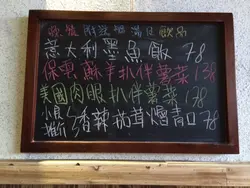 意大利墨魚飯 78
保軍蘇羊扒伴薯菜 138
美國肉眼扒伴薯菜 138
小食推介 香辣茄茸燴青口 78